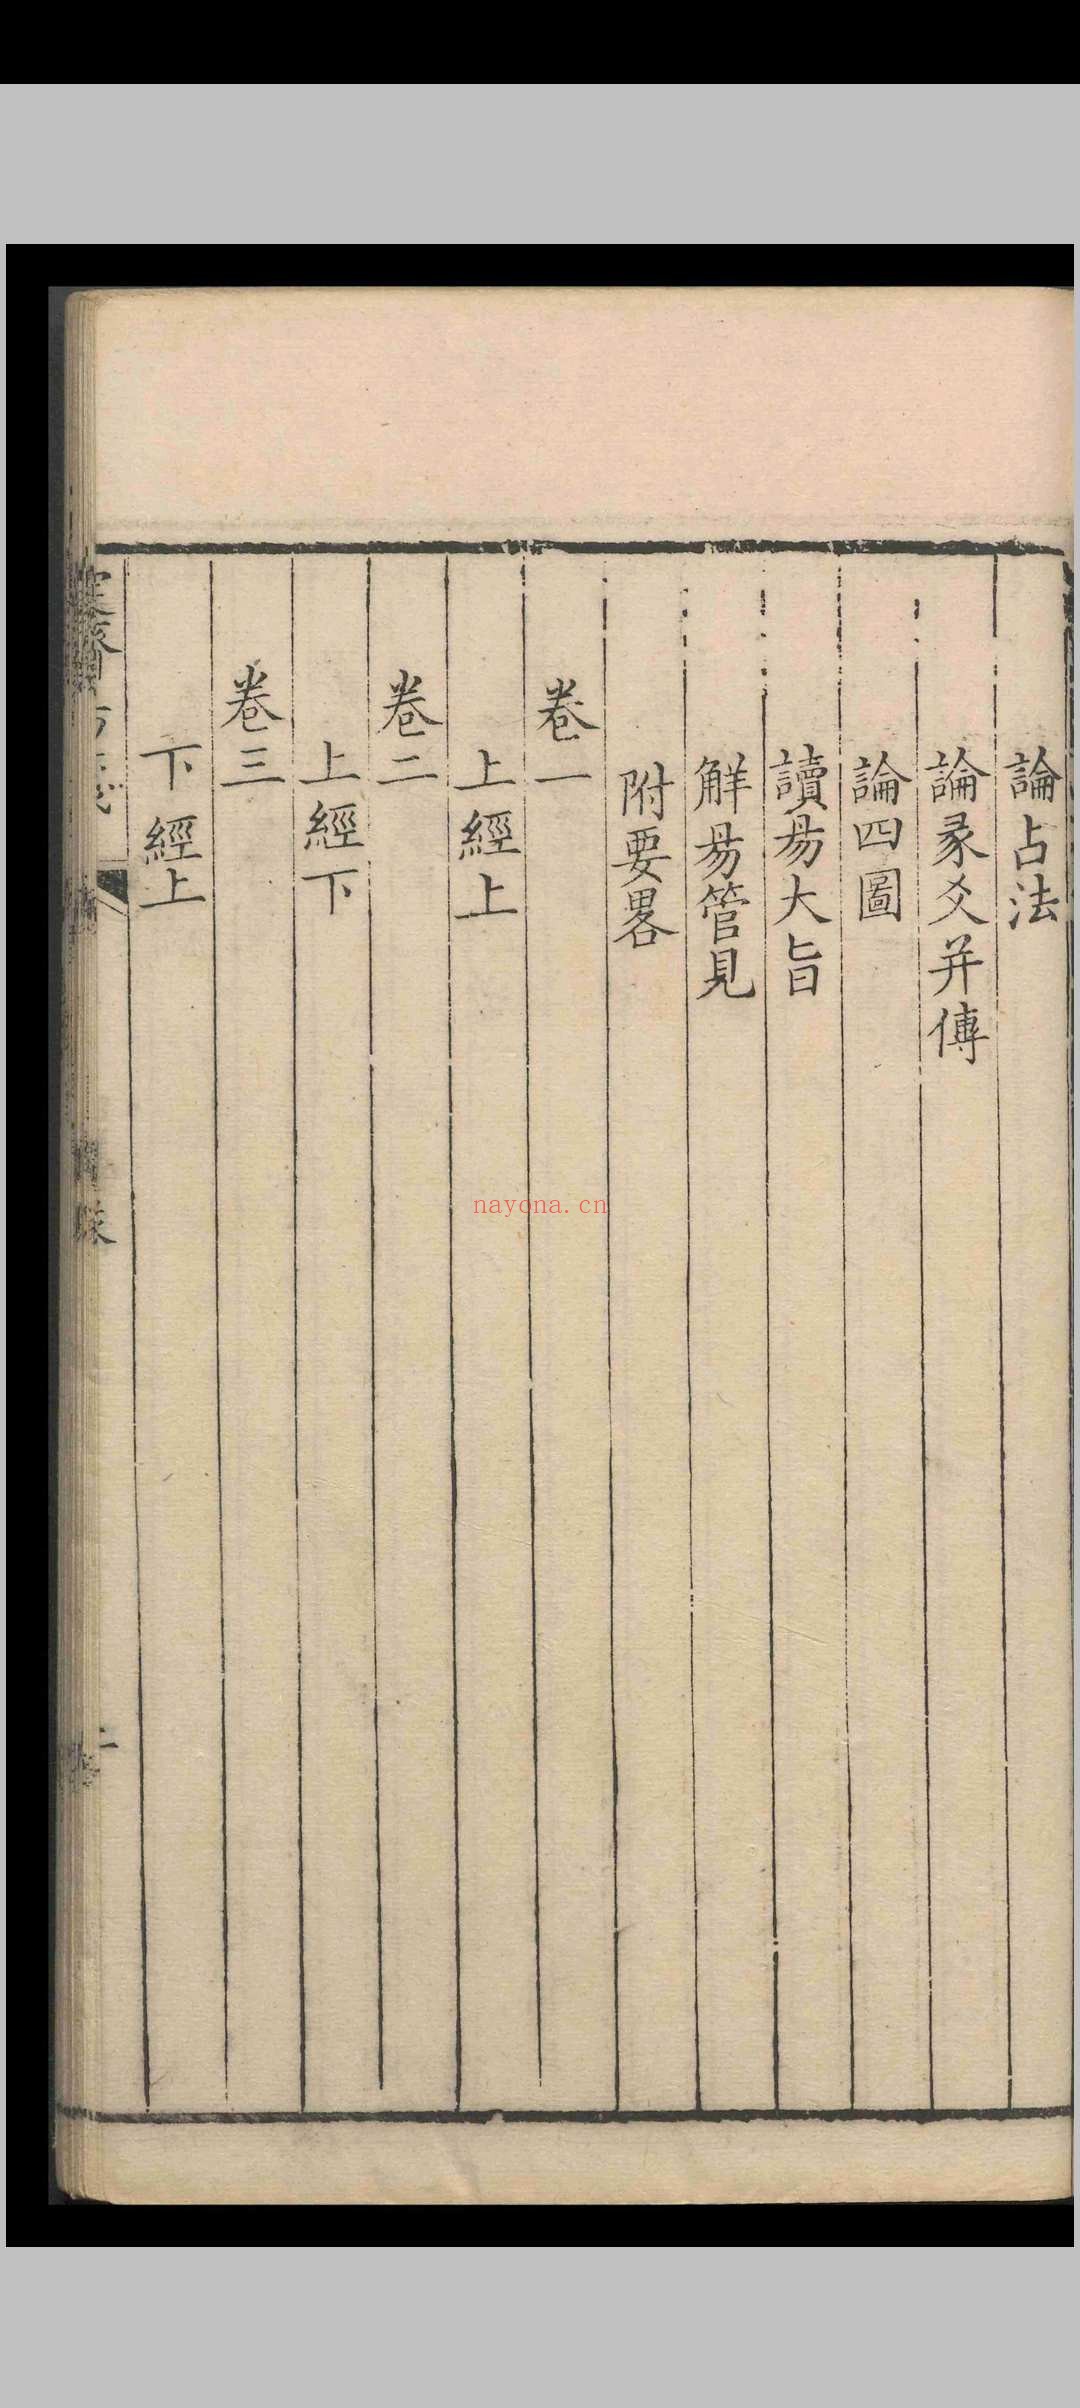 論占法
論彖爻并傳
論四圖
讀昜大旨
觧昜管見
附要畧
卷一
上經上
卷二
上經下
卷三
下經上
nayona.cn